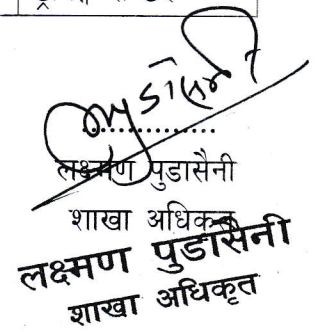 लक्ष्मण पुडासैनी
शाखा अधिकृत
लक्ष्मण पुडासैनी
शाखा अधिकृत